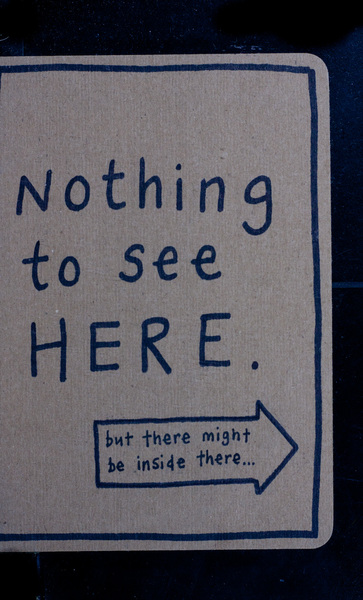 Nothing
to see
HERE.
but there might
be inside there...